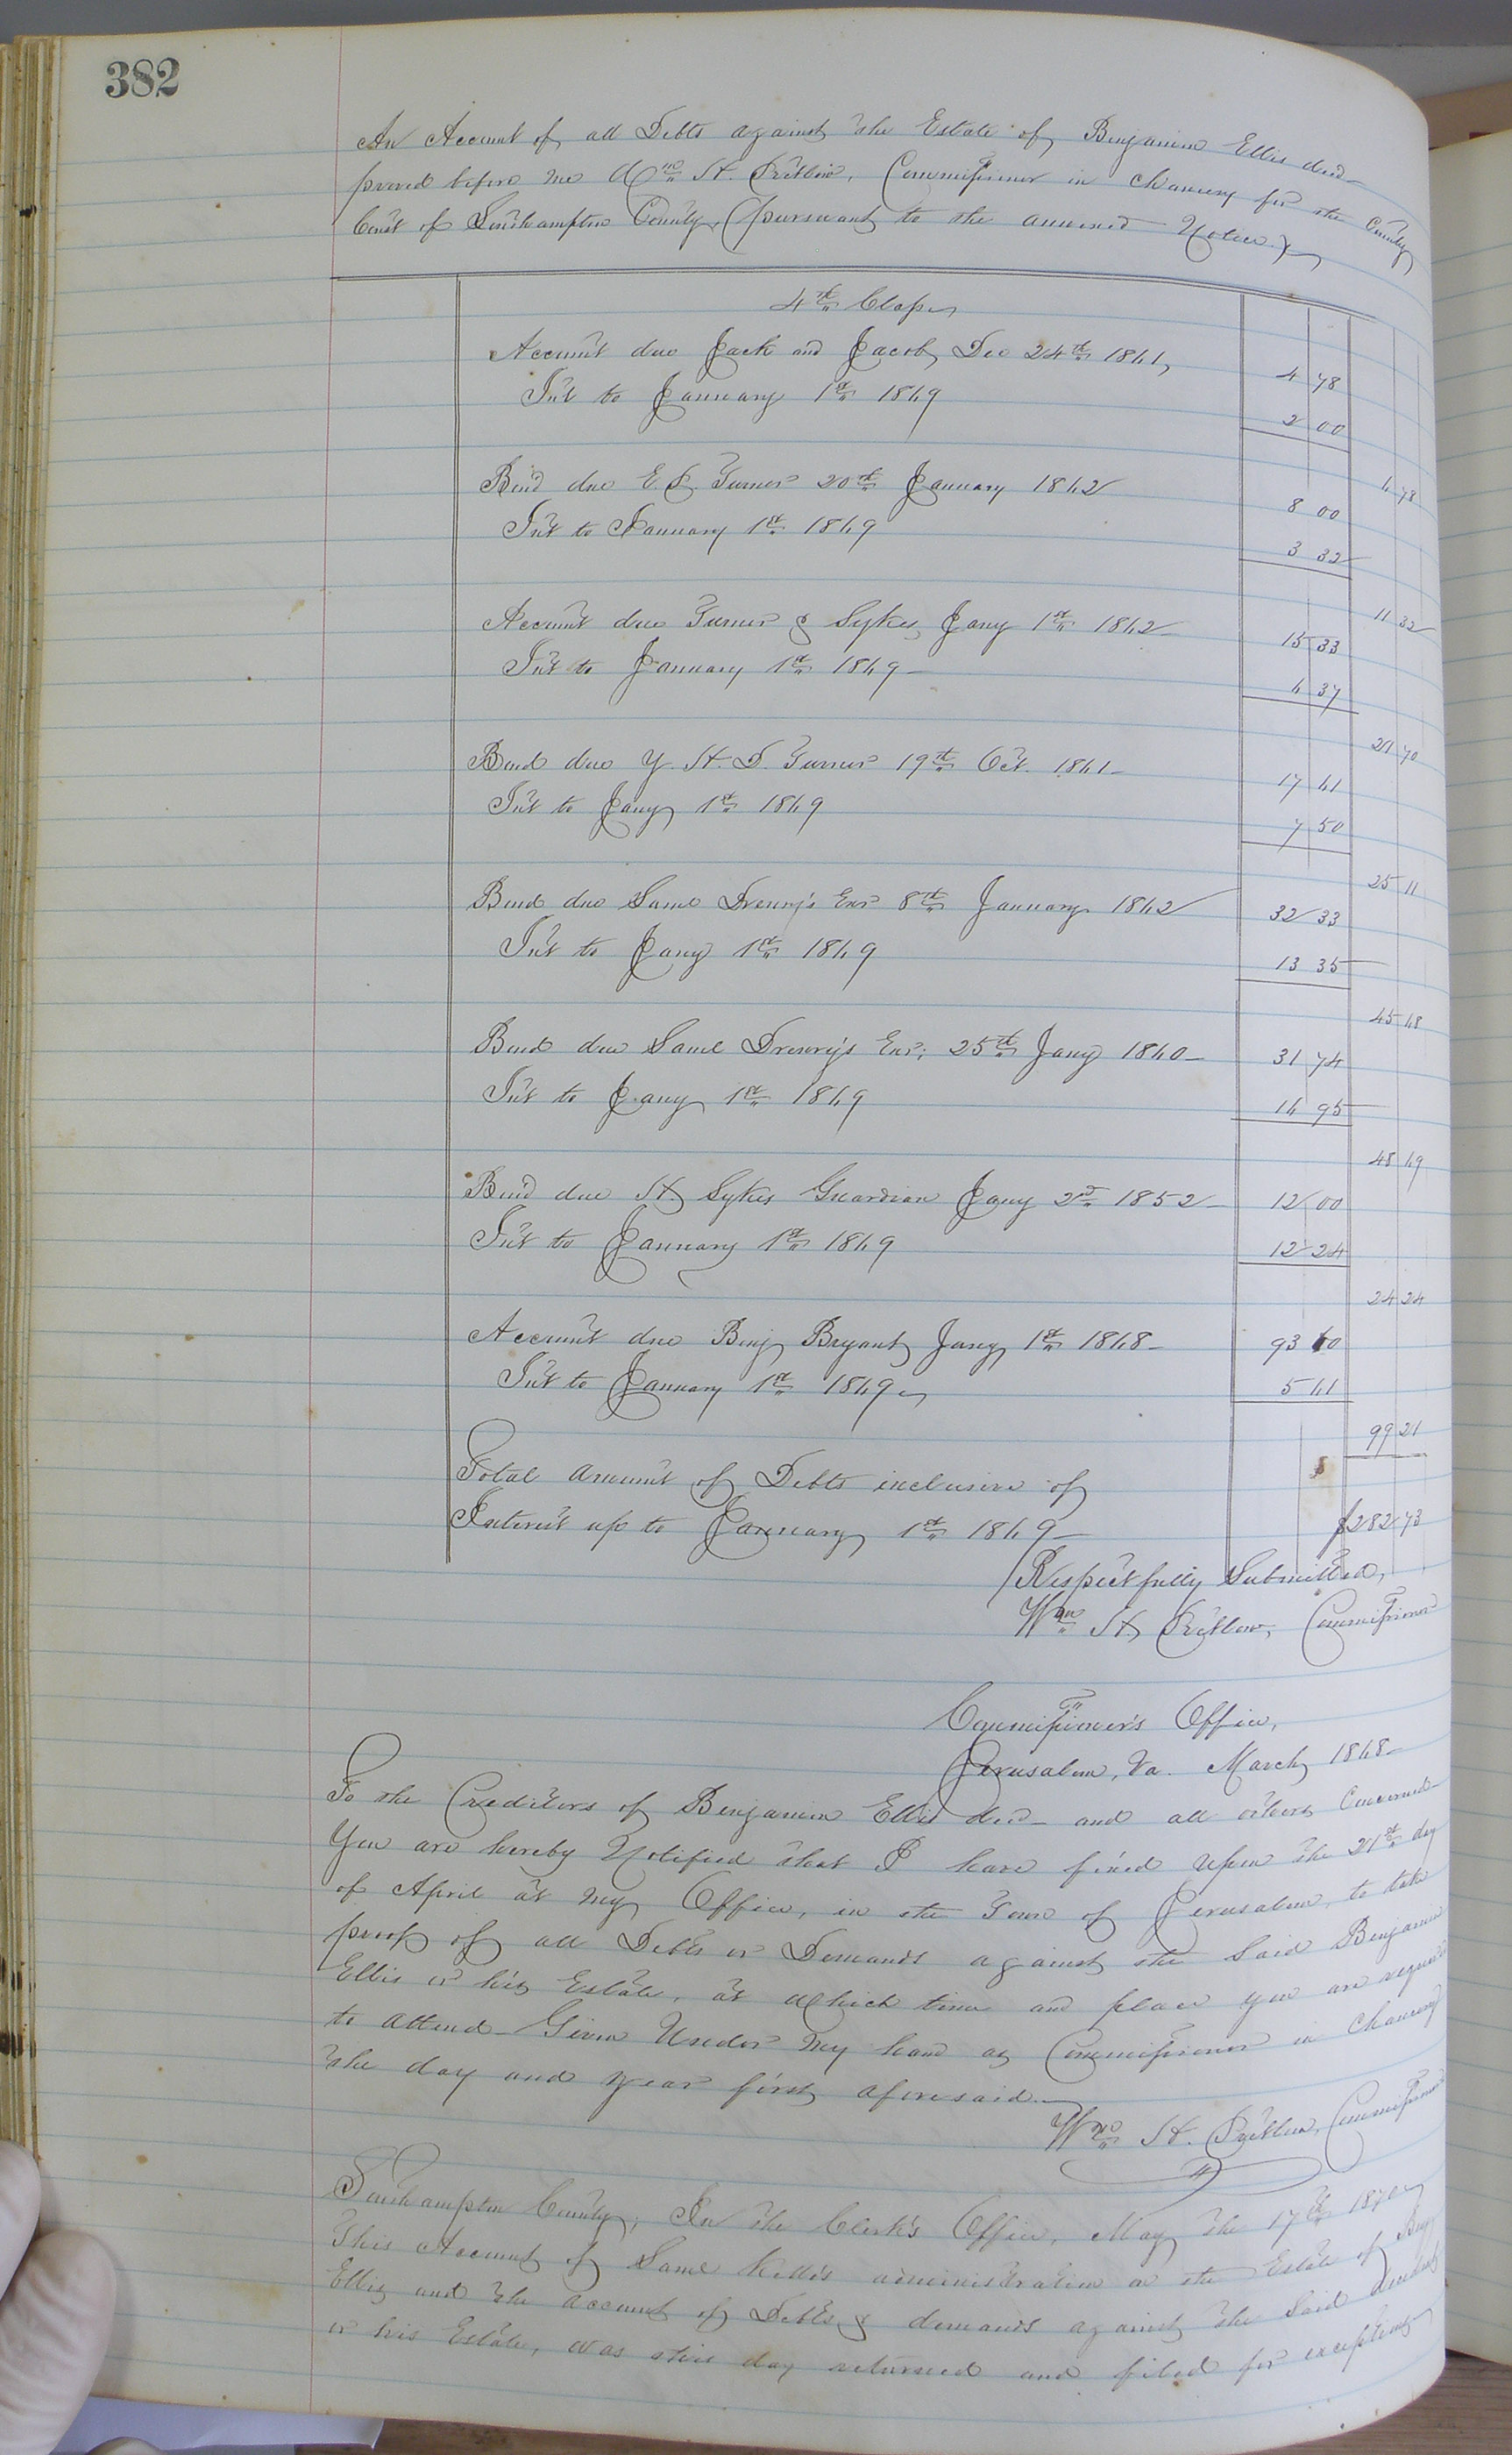 382
An Account of all Debts against the Estate of Benjamin Ellis decd
proved before me Wm H. Pretlow, Commissioner in Chancery for the County
Court of Southampton County, (pursuant to the annexed Notice)
4th Class
Account due Jack and Jacob, Dec 24th 1861, 4 78
Int to January 1st 1869 2 00
6 78
Bond due E. P. Turner 20th January 1862 8 00
Int to January 1st 1869 3 32
11 32
Account due Turner & Sykes Jany 1st 1862 15 33
Int to January 1st 1869 6 37
21 70
Bond due Y. H. D. Turner 19th Oct. 1861 17 61
Int to Jany 1st 1869 7 50
25 11
Bond due Saml Drewry's Exr 8th January 1862 32 33
Int to Jany 1st 1869 13 35
45 68
Bond due Saml Drewry's Exr; 25th Jany 1860 31 74
Int to Jany 1st 1869 16 95
48 69
Bond due H. Sykes Guardian Jany 2d 1852 12 00
Int to January 1st 1869 12 24
24 24
Account due Benj Bryant Jany 1st 1868 93 60
Int to January 1st 1869 5 61
99 21
Total amount of Debts inclusive of
Interest up to January 1st 1869 $282 73
Respectfully Submitted,
Wm H. Pretlow, Commissioner
Commissioner's Office,
Jerusalem, Va. March 1868
To the Creditors of Benjamin Ellis decd and all others Concerned
You are hereby Notified that I have fixed upon the 21st day
of April at my Office, in the Town of Jerusalem, to take
proof of all Debts or Demands against the said Benjamin
Ellis or his Estate, at which time and place you are required
to attend. Given Under my hand as Commissioner in Chancery
the day and year first aforesaid.
Wm H. Pretlow, Commissioner
Southampton County; In the Clerk's Office, May the 17th 1870
This Account of Saml Kello's administration on the Estate of Benj
Ellis and the account of Debts & demands against the said decedent
or his Estate, was this day returned and filed for exceptions